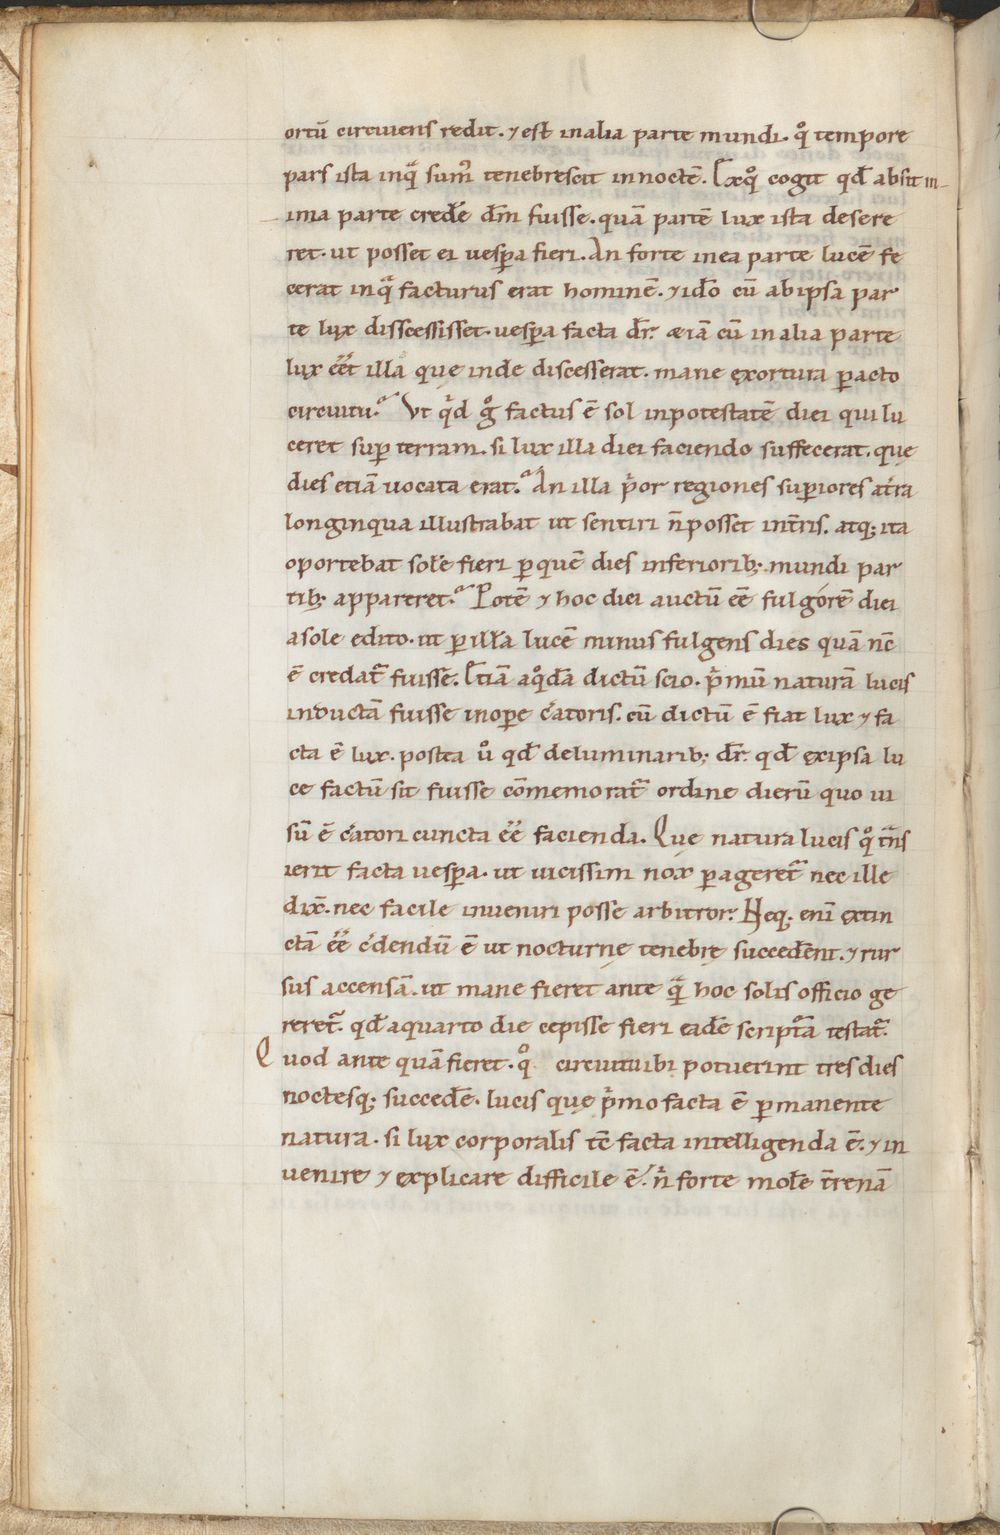 ortū circuiens redit. ⁊ est inalia parte mundi. q̊ tempore
pars ista inq̄ sum̄ tenebrescit innoctē. Exq̊ cogit qd̄ absit in-
ima parte credē dm̄ fuisse. quā partē lux ista desere
ret. ut posset ei uesp̄a fieri. An forte inea parte lucē fe
cerat inq̄ facturus erat hominē. ⁊ idō cū abipsa par
te lux disscessisset. uesp̄a facta dr̄. ęiā cū in alia parte
lux eēt illa que inde discesserat. mane exortura pacto
circuitu. Vt qd g̊ factus ē sol inpotestatē diei qui lu
ceret sup terram. si lux illa diei faciendo suffecerat. que
dies etiā uocata erat. An illa p̄or regiones supiores at̄ra
longinqua illustrabat ut sentiri n̄ posset int̄ris. atq; ita
oportebat solē fieri pquē dies inferiorib; mundi par
tib; appareret. Potē ⁊ hoc diei auctū eē fulgorē diei
asole edito. ut p illā lucē minus fulgens dies quā nc̄
ē credat̄ fuisse. Etiā aq̊dā dictū scio. p̄mū naturā lucis
inductā fuisse inope c̄atoris. cū dictū ē fiat lux ⁊ fa
cta ē lux. postea u̇ qd̄ deluminarib; dr̄. qd̄ exipsa lu
ce factū sit fuisse cōmemorat̄ ordine dierū quo ui
sū ē c̄atori cuncta eē facienda. Quę natura lucis q̊ t̄ns
ierit facta uesp̄a. ut uicissim nox pageret̄ nec ille
dix̄. nec facile inueniri posse arbitror. Neq; eni extin
ctā eē c̄dendū ē ut nocturnę tenebrę succedent. ⁊ rur
sus accensā. ut mane fieret ante q̄ hoc solis officio ge
reret̄. qd̄ aquarto die cepisse fieri eadē script̄a testat̄.
Quod ante quā fieret. q̊ circuitu ibi potuerint tres dies
noctesq; succedē. lucis quę p̄mo facta ē pmanente
natura. si lux corporalis tc̄ facta intelligenda ē. ⁊ in
uenire ⁊ explicare difficile ē. n̄ forte molē t̄renā